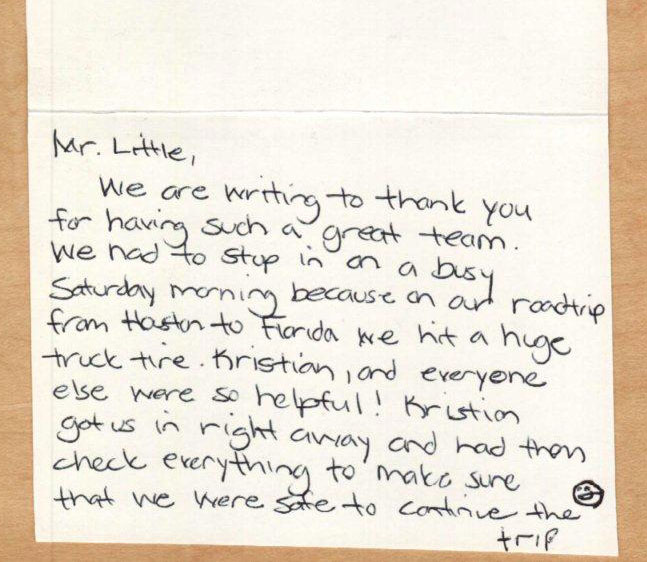 Mr. Little,
We are writing to thank you
for having such a great team.
We had to stop in on a busy
Saturday morning because on our roadtrip
from Houston to Florida we hit a huge
truck tire. Kristian, and everyone
else were so helpful! Kristian
got us in right away and had them
check everything to make sure
that we were safe to continue the
trip